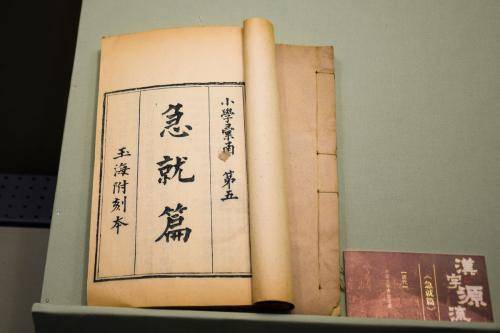 小學彙函 第五
急就篇
玉海附刻本
漢字源流
《急就篇》